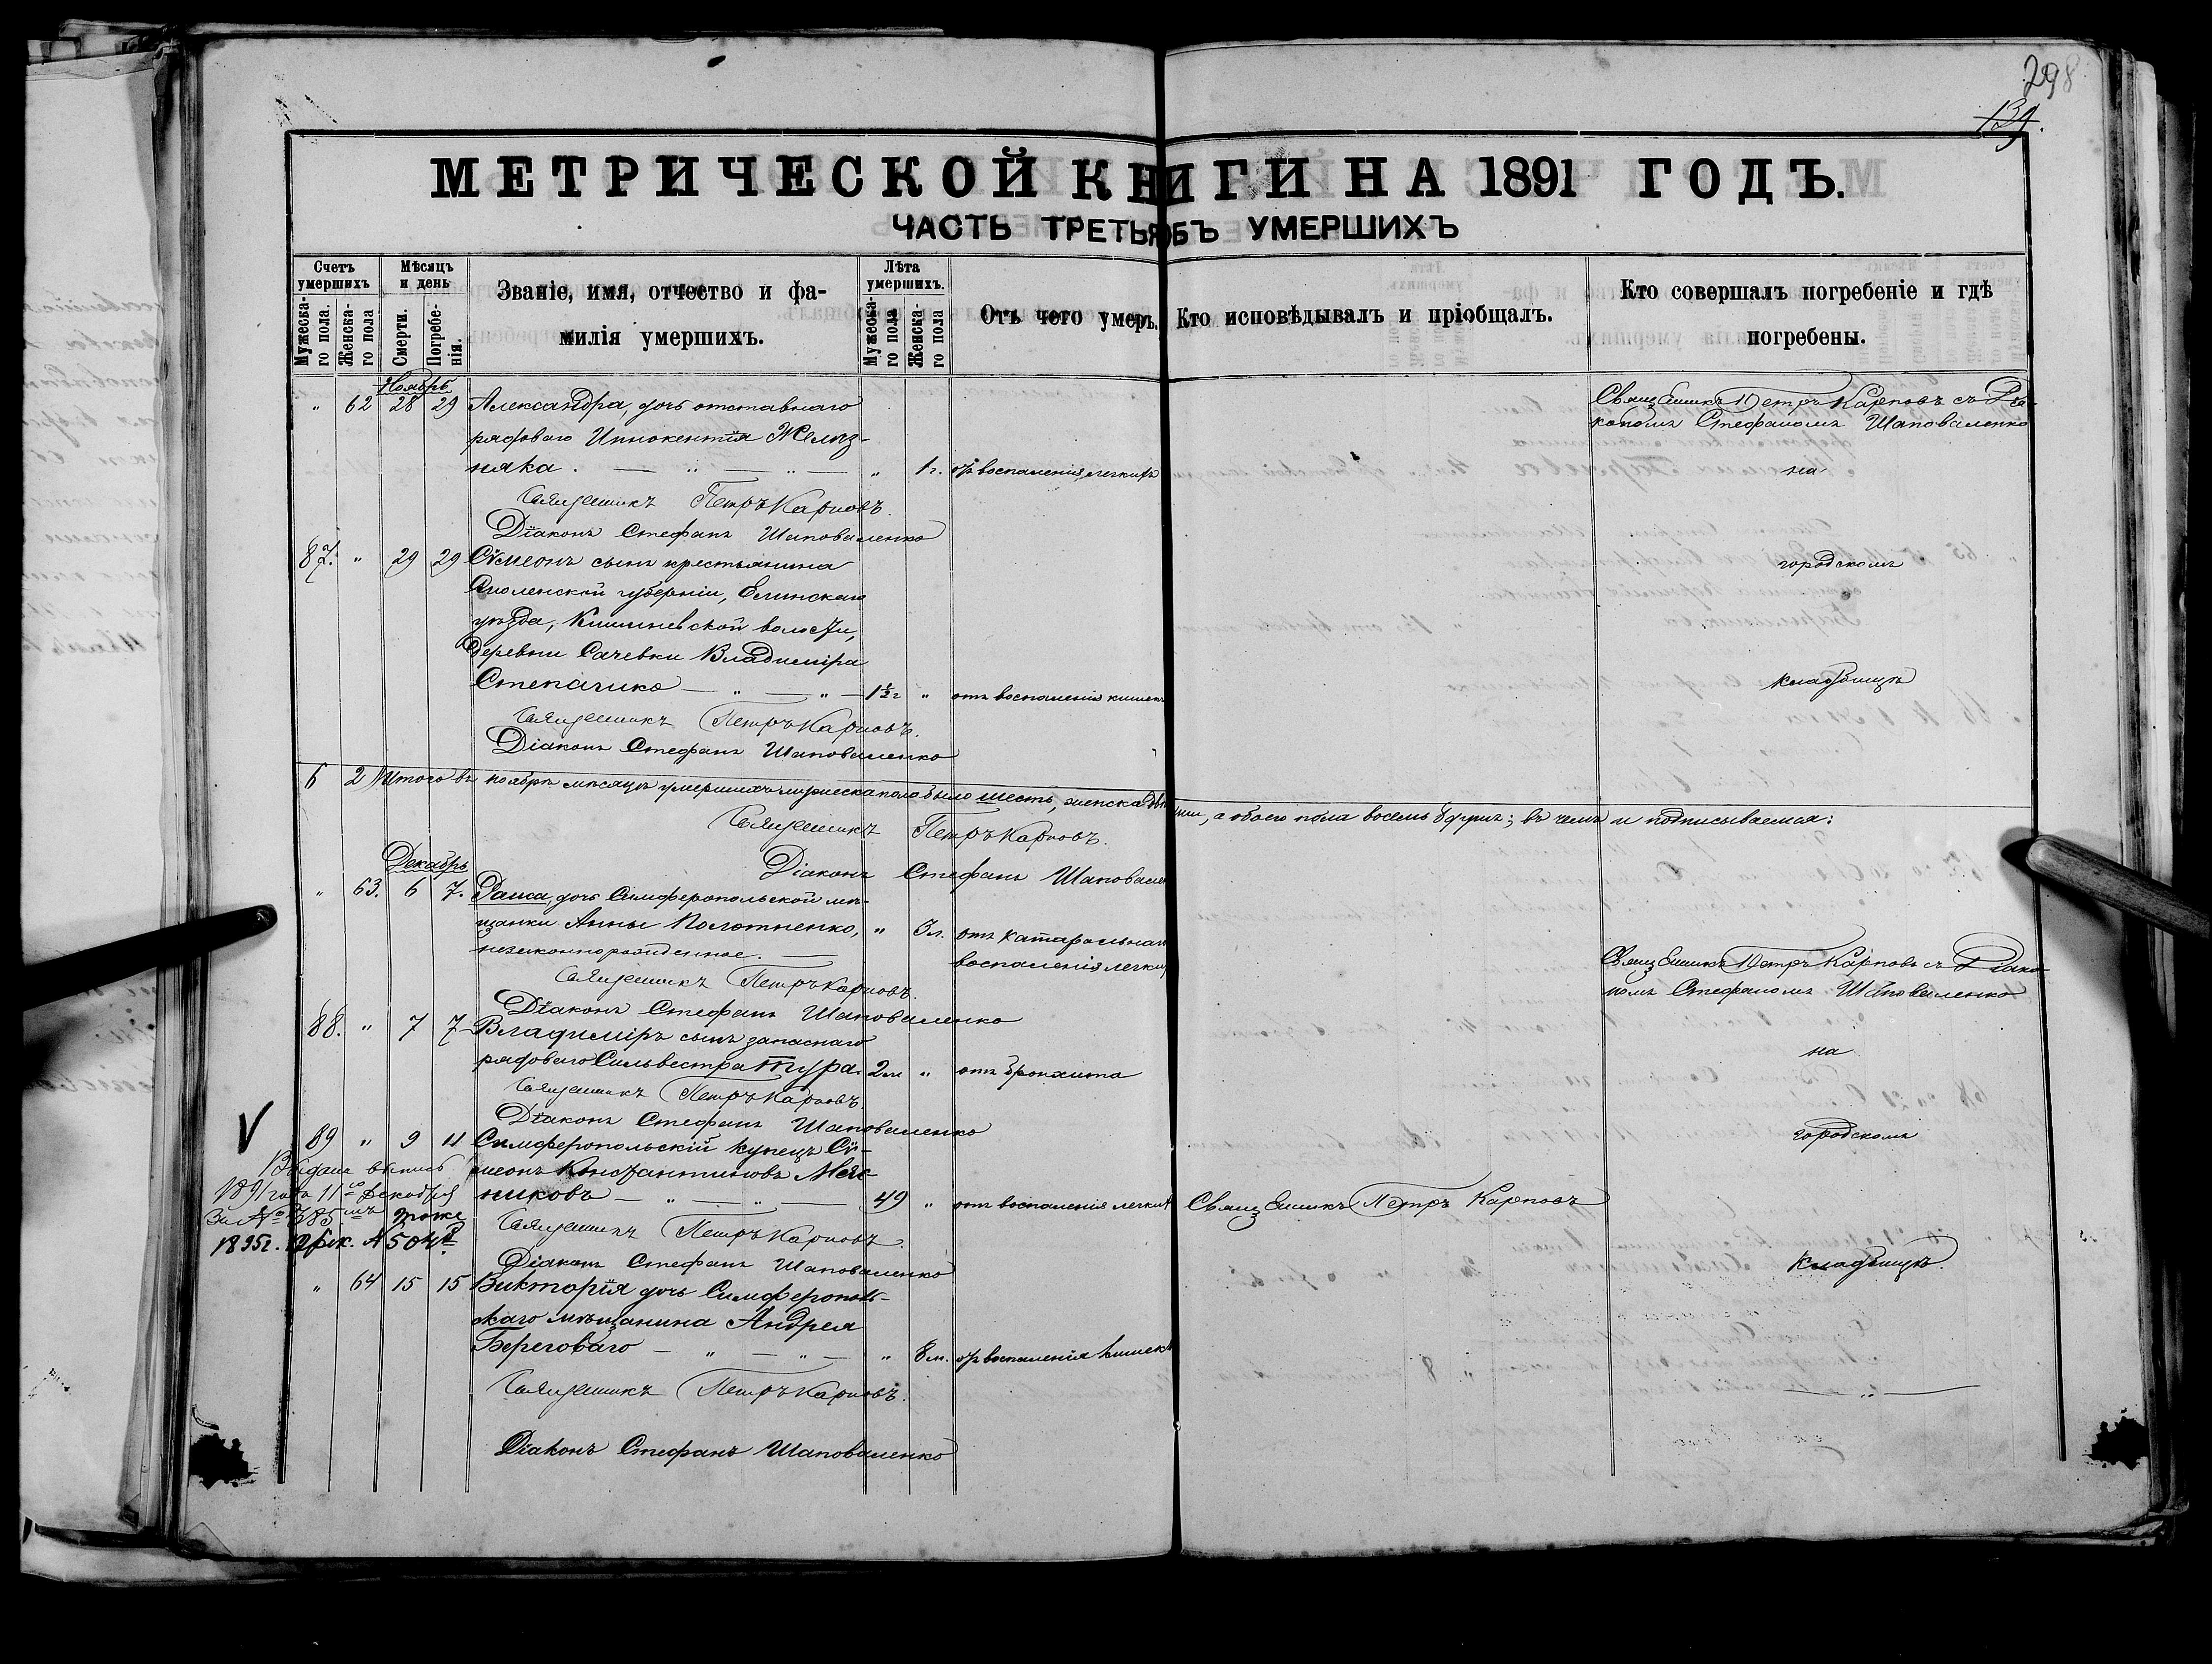 298
139.
МЕТРИЧЕСКОЙ КНИГИ НА 1891 ГОДЪ.
ЧАСТЬ ТРЕТЬЯ ОБЪ УМЕРШИХЪ
Счетъ умершихъ
Мужеска-го пола.
Женска-го пола
Мѣсяцъ и день
Смерти.
Погребе-нія.
Званіе, имя, отчество и фа-
милія умершихъ.
Лѣта умершихъ.
Мужеска-го пола
Женска-го пола
Отъ чего умеръ.
Кто исповѣдывалъ и пріобщалъ.
Кто совершалъ погребеніе и гдѣ
погребены.
Ноябрь
" 62 28 29 Александра, дочь отставнаго
рядоваго Иннокентія Желѣз-
няка. — " — " — " 1 г. отъ воспаленія легкихъ
Священникъ Петръ Карповъ.
Діаконъ Стефанъ Шаповаленко
Священникъ Петръ Карповъ съ Діа-
кономъ Стефаномъ Шаповаленко
на
городскомъ
кладбищѣ
87. " 29 29 Сѵмеонъ сынъ крестьянина
Смоленской губерніи, Елинскаго
уѣзда, волости,
деревни Сачевки Владиміра
— " — " — 1½ г " отъ воспаленія кишекъ
Священникъ Петръ Карповъ.
Діаконъ Стефанъ Шаповаленко
6 2 Итого въ ноябрѣ мѣсяцѣ умершихъ мужеска пола было шесть, женска а обоего пола восемь душъ; въ чемъ и подписываемся:
Священникъ Петръ Карповъ.
Діаконъ Стефанъ
Декабрь
" 63. 6 7. Раиса, дочь Симферопольской мѣ-
щанки Анны Полотненко, " 3 л. отъ катаральнаго
незаконнорожденное. — воспаленія легкихъ
Священникъ Петръ Карповъ.
Діаконъ Стефанъ Шаповаленко
Священникъ Петръ Карповъ съ Діако-
номъ Стефаномъ Шаповаленко
на
городскомъ
кладбищѣ.
88. " 7 7 Владиміръ сынъ запаснаго
рядоваго Сильвестра Тура. 2 м " отъ бронхита
Священникъ Петръ Карповъ.
Діаконъ Стефанъ Шаповаленко
V
89 " 9 11 Симферопольскій купецъ Сѵ-
меонъ Константиновъ
никовъ — " — " — 49 " отъ воспаленія легкихъ Священникъ Петръ Карповъ
Священникъ Петръ Карповъ.
Діаконъ Стефанъ Шаповаленко
Выдана выпись
1891 года 11го Декабря
за № тоже
1895 г.
" 64 15 15 Викторія дочь Симферополь-
скаго мѣщанина Андрея
Береговаго — " — " — " 8 м. отъ воспаленія кишекъ
Священникъ Петръ Карповъ.
Діаконъ Стефанъ Шаповаленко